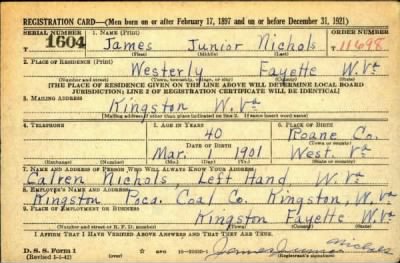 REGISTRATION CARD—(Men born on or after February 17, 1897 and on or before December 31, 1921)
SERIAL NUMBER 1. NAME (Print) ORDER NUMBER
1604 James Junior Nichols T11698
(First) (Middle) (Last)
2. PLACE OF RESIDENCE (Print)
Westerly Fayette W. Va
(Number and street) (Town, township, village, or city) (County) (State)
[THE PLACE OF RESIDENCE GIVEN ON THE LINE ABOVE WILL DETERMINE LOCAL BOARD
JURISDICTION; LINE 2 OF REGISTRATION CERTIFICATE WILL BE IDENTICAL]
3. MAILING ADDRESS
Kingston W. Va
[Mailing address if other than place indicated on line 2. If same insert word same]
4. TELEPHONE 5. AGE IN YEARS 6. PLACE OF BIRTH
40 Roane Co.
DATE OF BIRTH (Town or county)
Mar. 1901 West. Va
(Exchange) (Number) (Mo.) (Day) (Yr.) (State or country)
7. NAME AND ADDRESS OF PERSON WHO WILL ALWAYS KNOW YOUR ADDRESS
Nichols, Left Hand, W. Va
8. EMPLOYER'S NAME AND ADDRESS
Kingston Poca. Coal Co. Kingston, W. Va
9. PLACE OF EMPLOYMENT OR BUSINESS
Kingston Fayette W. Va
(Number and street or R. F. D. number) (Town) (County) (State)
I AFFIRM THAT I HAVE VERIFIED ABOVE ANSWERS AND THAT THEY ARE TRUE.
D. S. S. Form 1
(Revised 1-1-42) (over) James Junior Nichols
(Registrant's signature)